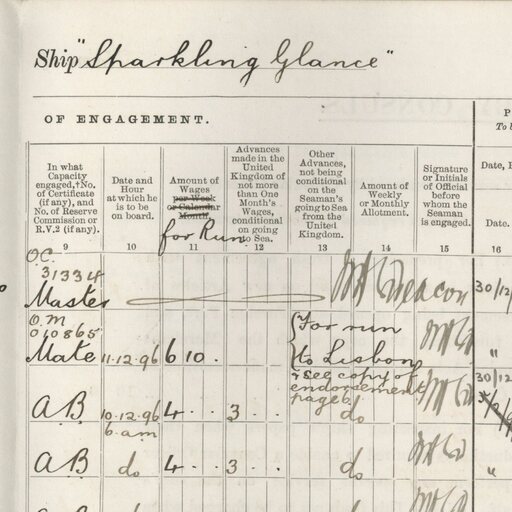 Ship "Sparkling Glance"
OF ENGAGEMENT.
In what Capacity engaged,†No. of Certificate (if any), and No. of Reserve Commission or R.V.2 (if any).
Date and Hour at which he is to be on board.
Amount of Wages per Week or Calendar Month.
for Run
Advances made in the United Kingdom of not more than One Month's Wages, conditional on going to Sea.
Other Advances, not being conditional on the Seaman's going to Sea from the United Kingdom.
Amount of Weekly or Monthly Allotment.
Signature or Initials of Official before whom the Seaman is engaged.
Date.
9 10 11 12 13 14 15 16
O.C.
31334
Master Deacon 30/12/
O.M
010865 {For run
Mate 11.12.96 6 10. {to Lisbon "
& see copy of 30/12
endorsement
page 6
AB 10.12.96 4 . . 3 . . do
6. am
AB do 4 . . 3 . . do "